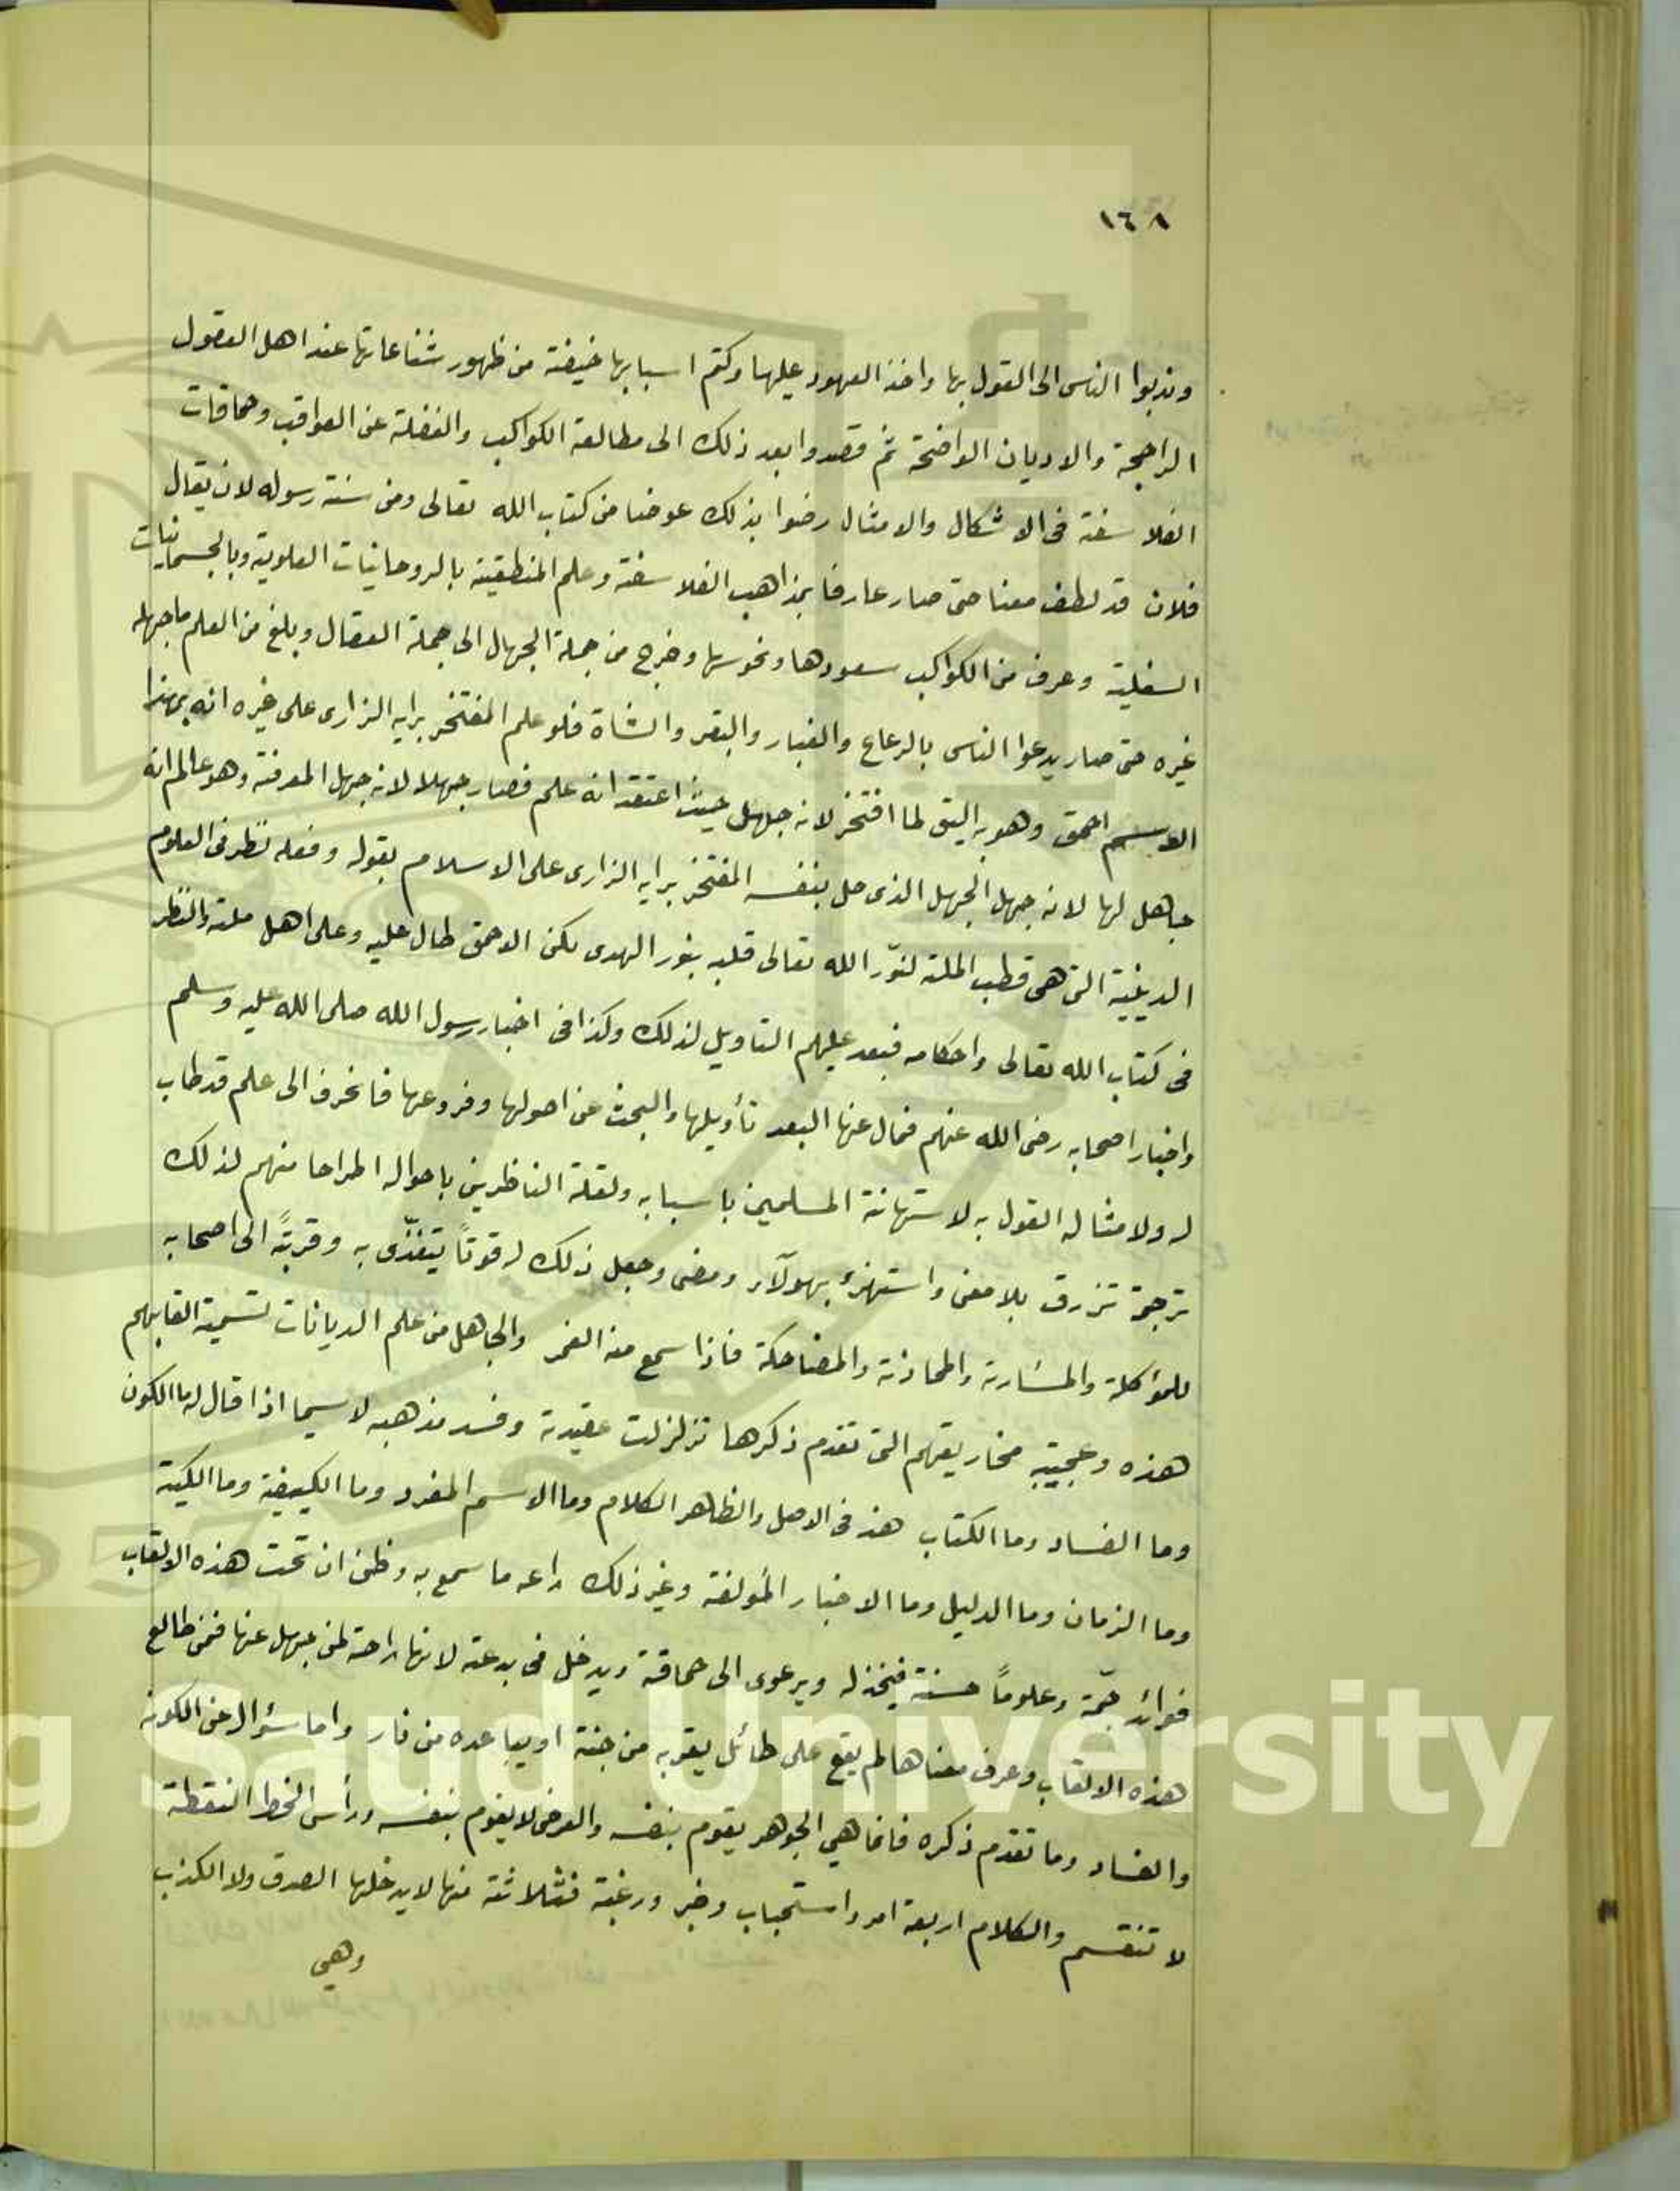 ١٦٨
وندبوا الناس الى القول بها واخذ العهود عليها وكتم اسبابها خيفة من ظهور شناعاتها عند اهل العقول
الراجحة والاديان الواضحة ثم قصدوا بعد ذلك الى مطالعة الكواكب والغفلة عن العواقب وحماقات
الفلاسفة فى الاشكال والامثال رضوا بذلك عوضا من كتاب الله تعالى ومن سنة رسوله لان يقال
فلان قد لطف معنا حتى صار عارفا بمذاهب الفلاسفة وعلم المنطقية بالروحانيات العلوية وبالجسمانيات
السفلية وعرف من الكواكب سعودها ونحوسها وخرج من جملة الجهال الى جملة العقال وبلغ من العلم ما جهله
غيره حتى صار يدعوا الناس بالرعاع والغبار والبقر والشاة فلو علم المفتخر برايه الزارى على غيره انه بهذا
الاسم احمق وهو به اليق لما افتخر لانه جاهل حيث اعتقد انه علم فصار جهلا لانه جهل المعرفة وهو عالم انه
جاهل لها لانه جهل الجهل الذى حل بنفسه المفتخر برايه الزارى على الاسلام بقوله وفعله نظر فى العلوم
الدينية التى هى قطب الملة لنوّر الله تعالى قلبه بنور الهدى لكن الاحمق طال عليه وعلى اهل ملته والنظر
فى كتاب الله تعالى واحكامه فبعد عليهم التاويل لذلك وكذا فى اخبار رسول الله صلى الله عليه وسلم
واخبار اصحابه رضى الله عنهم فمال عنها البعد تأويلها والبحث عن اصولها وفروعها فانحرف الى علم قد طاب
له ولامثاله القول به لاستهانة المسلمين باسبابه ولقلة الناظرين باحواله اطراحا منهم لذلك
ترجمة تزرق بلا معنى واستهزء بهولآء ومضى وجعل ذلك له قوتاً يتغذّى به وقربةً الى اصحابه
للمؤاكلة والمشاربة والمحاذثة والمضاحكة فاذا سمع منه الغمر والجاهل من علم الديانات تسمية القابهم
هذه وعجيبة مخاريقهم التى تقدم ذكرها تزلزلت عقيدته وفسد مذهبه لاسيما اذا قال له ما الكون
وما الفساد وما الكتاب هذ فى الاصل والظاهر الكلام وما الاسم المفرد وما الكيفية وما الكمية
وما الزمان وما الدليل وما الاخبار المؤلفة وغير ذلك راعه ما سمع به وظن ان تحت هذه الالقاب
فوائد جمّة وعلوماً حسنة فيخذله ويرعوى الى حماقة ويدخل فى بدعته لانها راحة لمن جهل عنها فمن طالع
هذه الالقاب وعرف معناها لم يقع على طائل يقربه من جنة او يباعده من نار واما سؤاله عن الكون
والفساد وما تقدم ذكره فانما هي الجوهر يقوم بنفسه والعرض لا يقوم بنفسه ورأس الخط النقطة
لا تنقسم والكلام اربعة امر واستحباب وخبر ورغبة فثلاثة منها لا يدخلها الصدق ولا الكذب
وهي
g Saud University